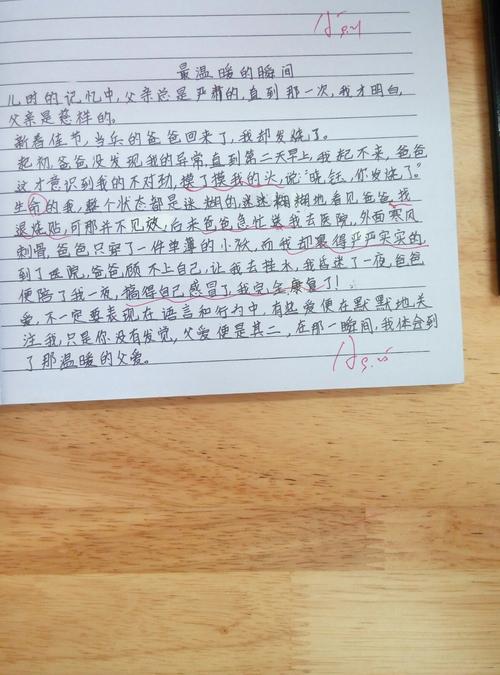 最温暖的瞬间
儿时的记忆中,父亲总是严肃的,直到那一次,我才明白,
父亲是慈祥的。
新春佳节,当兵的爸爸回来了,我却发烧了。
起初,爸爸没发现我的异常,直到第二天早上,我起不来,爸爸
这才意识到我的不对劲,摸了摸我的头,说:“晓钰,你发烧了。”
生命的我,整个状态都是迷糊的,迷迷糊糊地看见爸爸找
退烧贴,可那并不见效,后来爸爸急忙送我去医院,外面寒风
刺骨,爸爸只穿了一件单薄的小秋,而我却裹得严严实实的,
到了医院,爸爸顾不上自己,让我去挂水,我昏迷了一夜,爸爸
便陪了我一夜,搞得自己感冒了,我完全康复了!
爱,不一定要表现在语言和行为中,有些爱便在默默地关
注我,只是你没有发觉,父爱便是其二,在那一瞬间,我体会到
了那温暖的父爱。